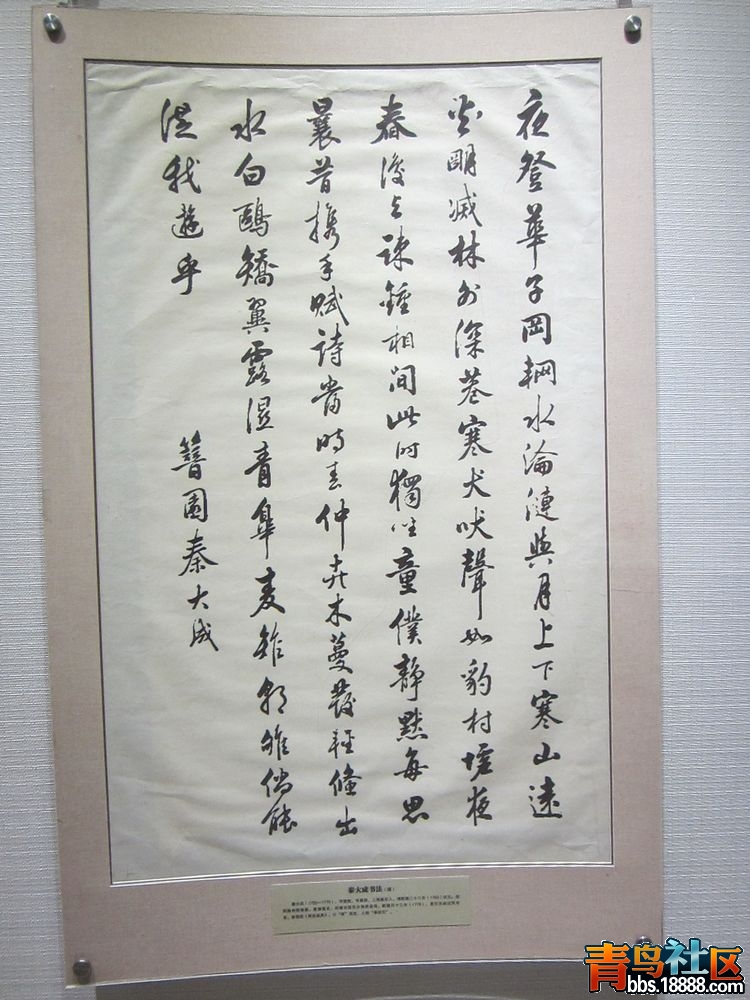 夜登華子岡輞水淪漣與月上下寒山遠
火明滅林外深巷寒犬吠聲如豹村墟夜
春復与疎鍾相間此时獨坐童僕靜默每思
曩昔携手賦诗當時春仲卉木蔓發輕鯈出
水白鷗矯翼露濕青皋麦雉朝雊倘能
從我遊乎
簪園秦大成
秦大成书法（清）
青鸟社区
bbs.18888.com